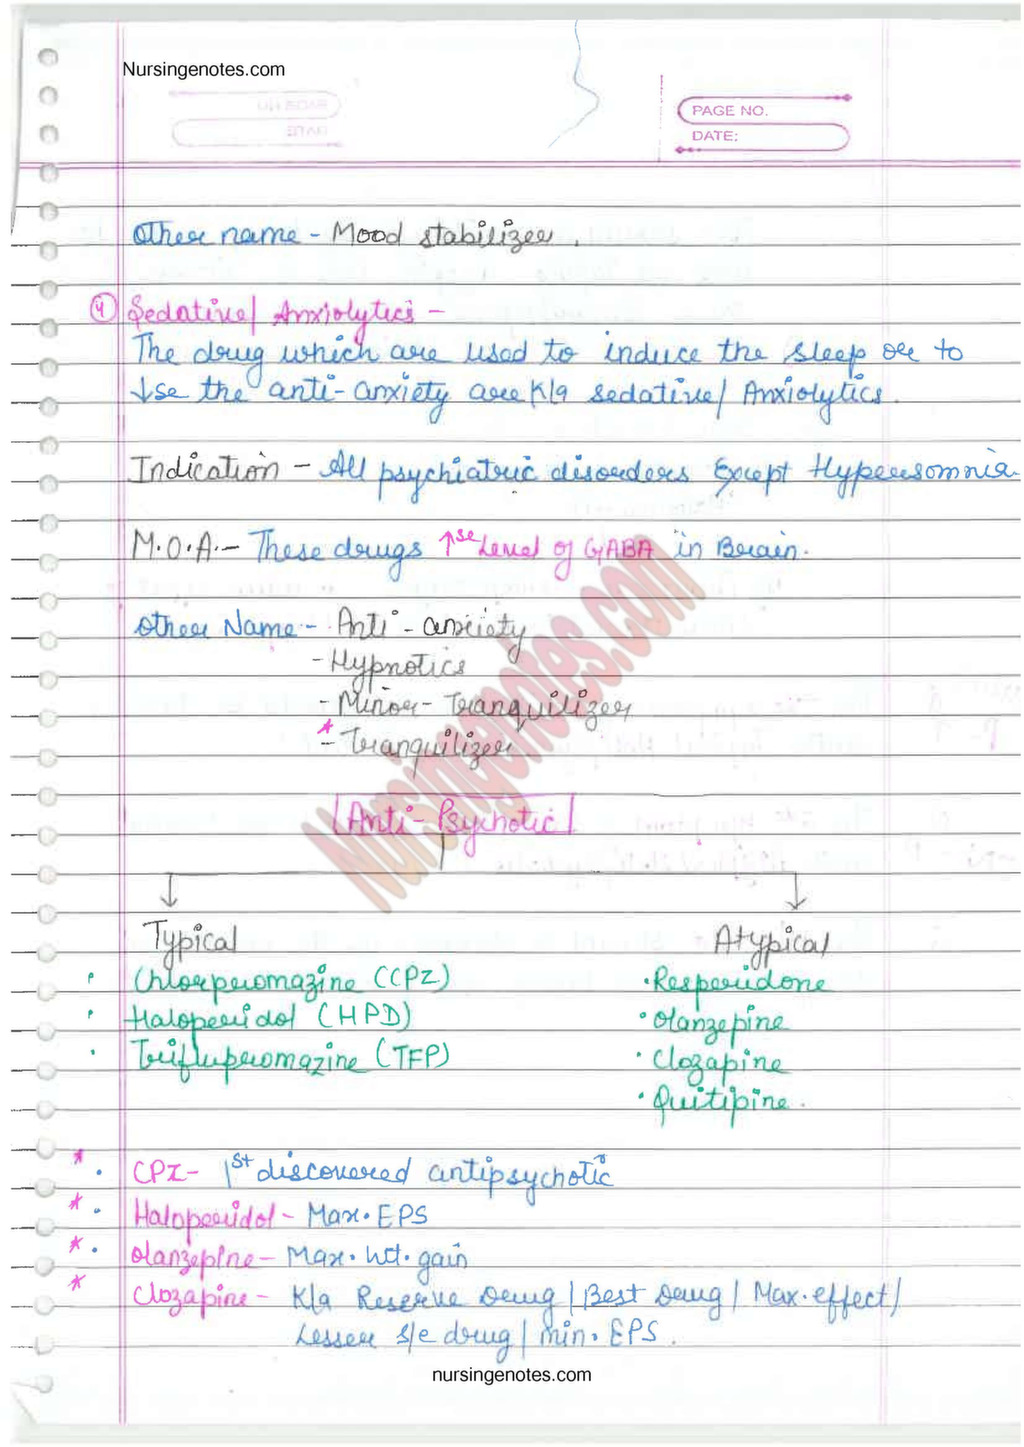 Nursingenotes.com
PAGE NO.
DATE:
Other name - Mood stabilizer.
4 Sedative/ Anxiolytics -
The drug which are used to induce the sleep or to
↓se the anti-anxiety are K/a sedative/ Anxiolytics.
Indication - All psychiatric disorders Except Hypersomnia
M.O.A. - These drugs ↑se Level of GABA in Brain.
Other Name - Anti - anxiety
- Hypnotics
- Minor - Tranquilizer
* - Tranquilizer
Nursingenotes.com
Anti - Psychotic
Typical Atypical
• Chlorpromazine (CPZ) • Resperidone
• Haloperidol (HPD) • Olanzepine
• Triflupromazine (TFP) • Clozapine
• Quitipine.
* • CPZ - 1st discovered antipsychotic
* • Haloperidol - Max. EPS
* • Olanzepine - Max. wt. gain
* Clozapine - K/a Reserve Drug / Best Drug / Max. effect/
Lesser s/e drug / min. EPS.
nursingenotes.com